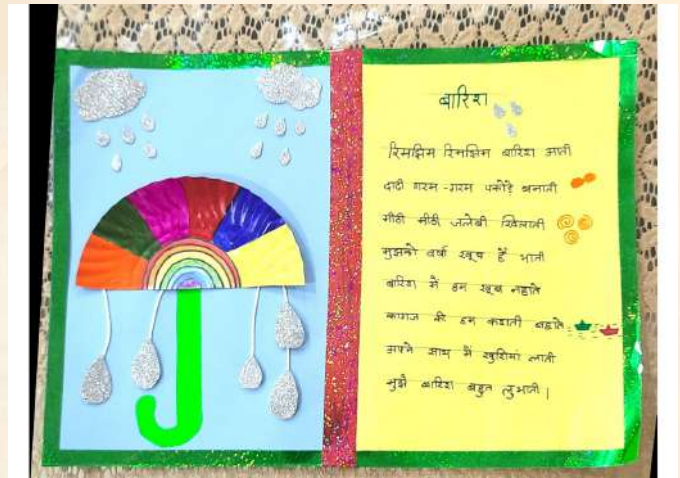 बारिश
रिमझिम रिमझिम बारिश आती
दादी गरम-गरम पकोड़े बनाती
मीठी मीठी जलेबी खिलाती
मुझको वर्षा खूब हैं भाती
बारिश में हम खूब नहाते
कागज की हम कश्ती बहाते
अपने साथ में खुशियां लाती
मुझे बारिश बहुत लुभाती।